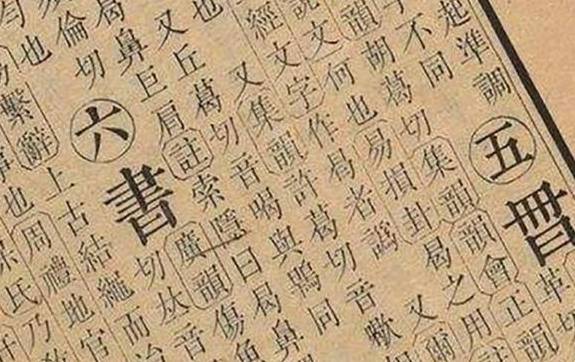 起準調五
子不同
韻胡葛切集韻韻會正韻
說文何也易損卦曷之用
經文字作曷者譌又爾
又集韻許葛切音歇
也又丘葛切音喝與鶡同
曷鼻巨肩註索隱曰曷鼻
倫切六書廣韻傷魚
也切𠀤音
繫辭上古結繩而治
也周禮地官
氏乃